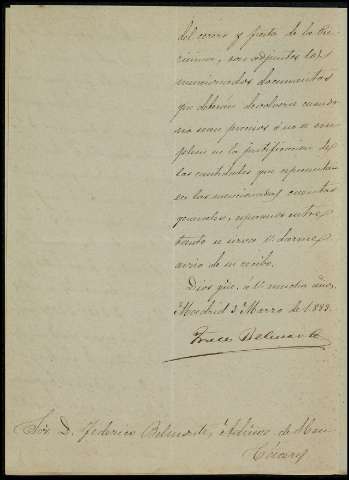 del cerero y fiesta de la
son adjuntos los
mencionados documentos
que deberán devolverse cuando
no sean precisos ó no se em
pleen en la justificación de
las cantidades que representan
en las mencionadas cuentas
generales, esperamos entre
tanto se sirva V. darnos
aviso de su recibo.
Dios gue. á V. muchos años
Madrid 3 Marzo de 1883
Belmonte
Sor. D. Federico Belmonte, de